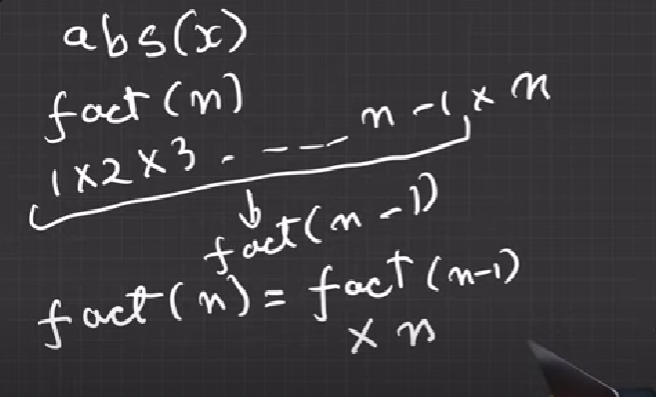 abs(x)
fact(n)
1x2x3. ---- n-1 x n
fact(n-1)
fact(n) = fact(n-1)
x n